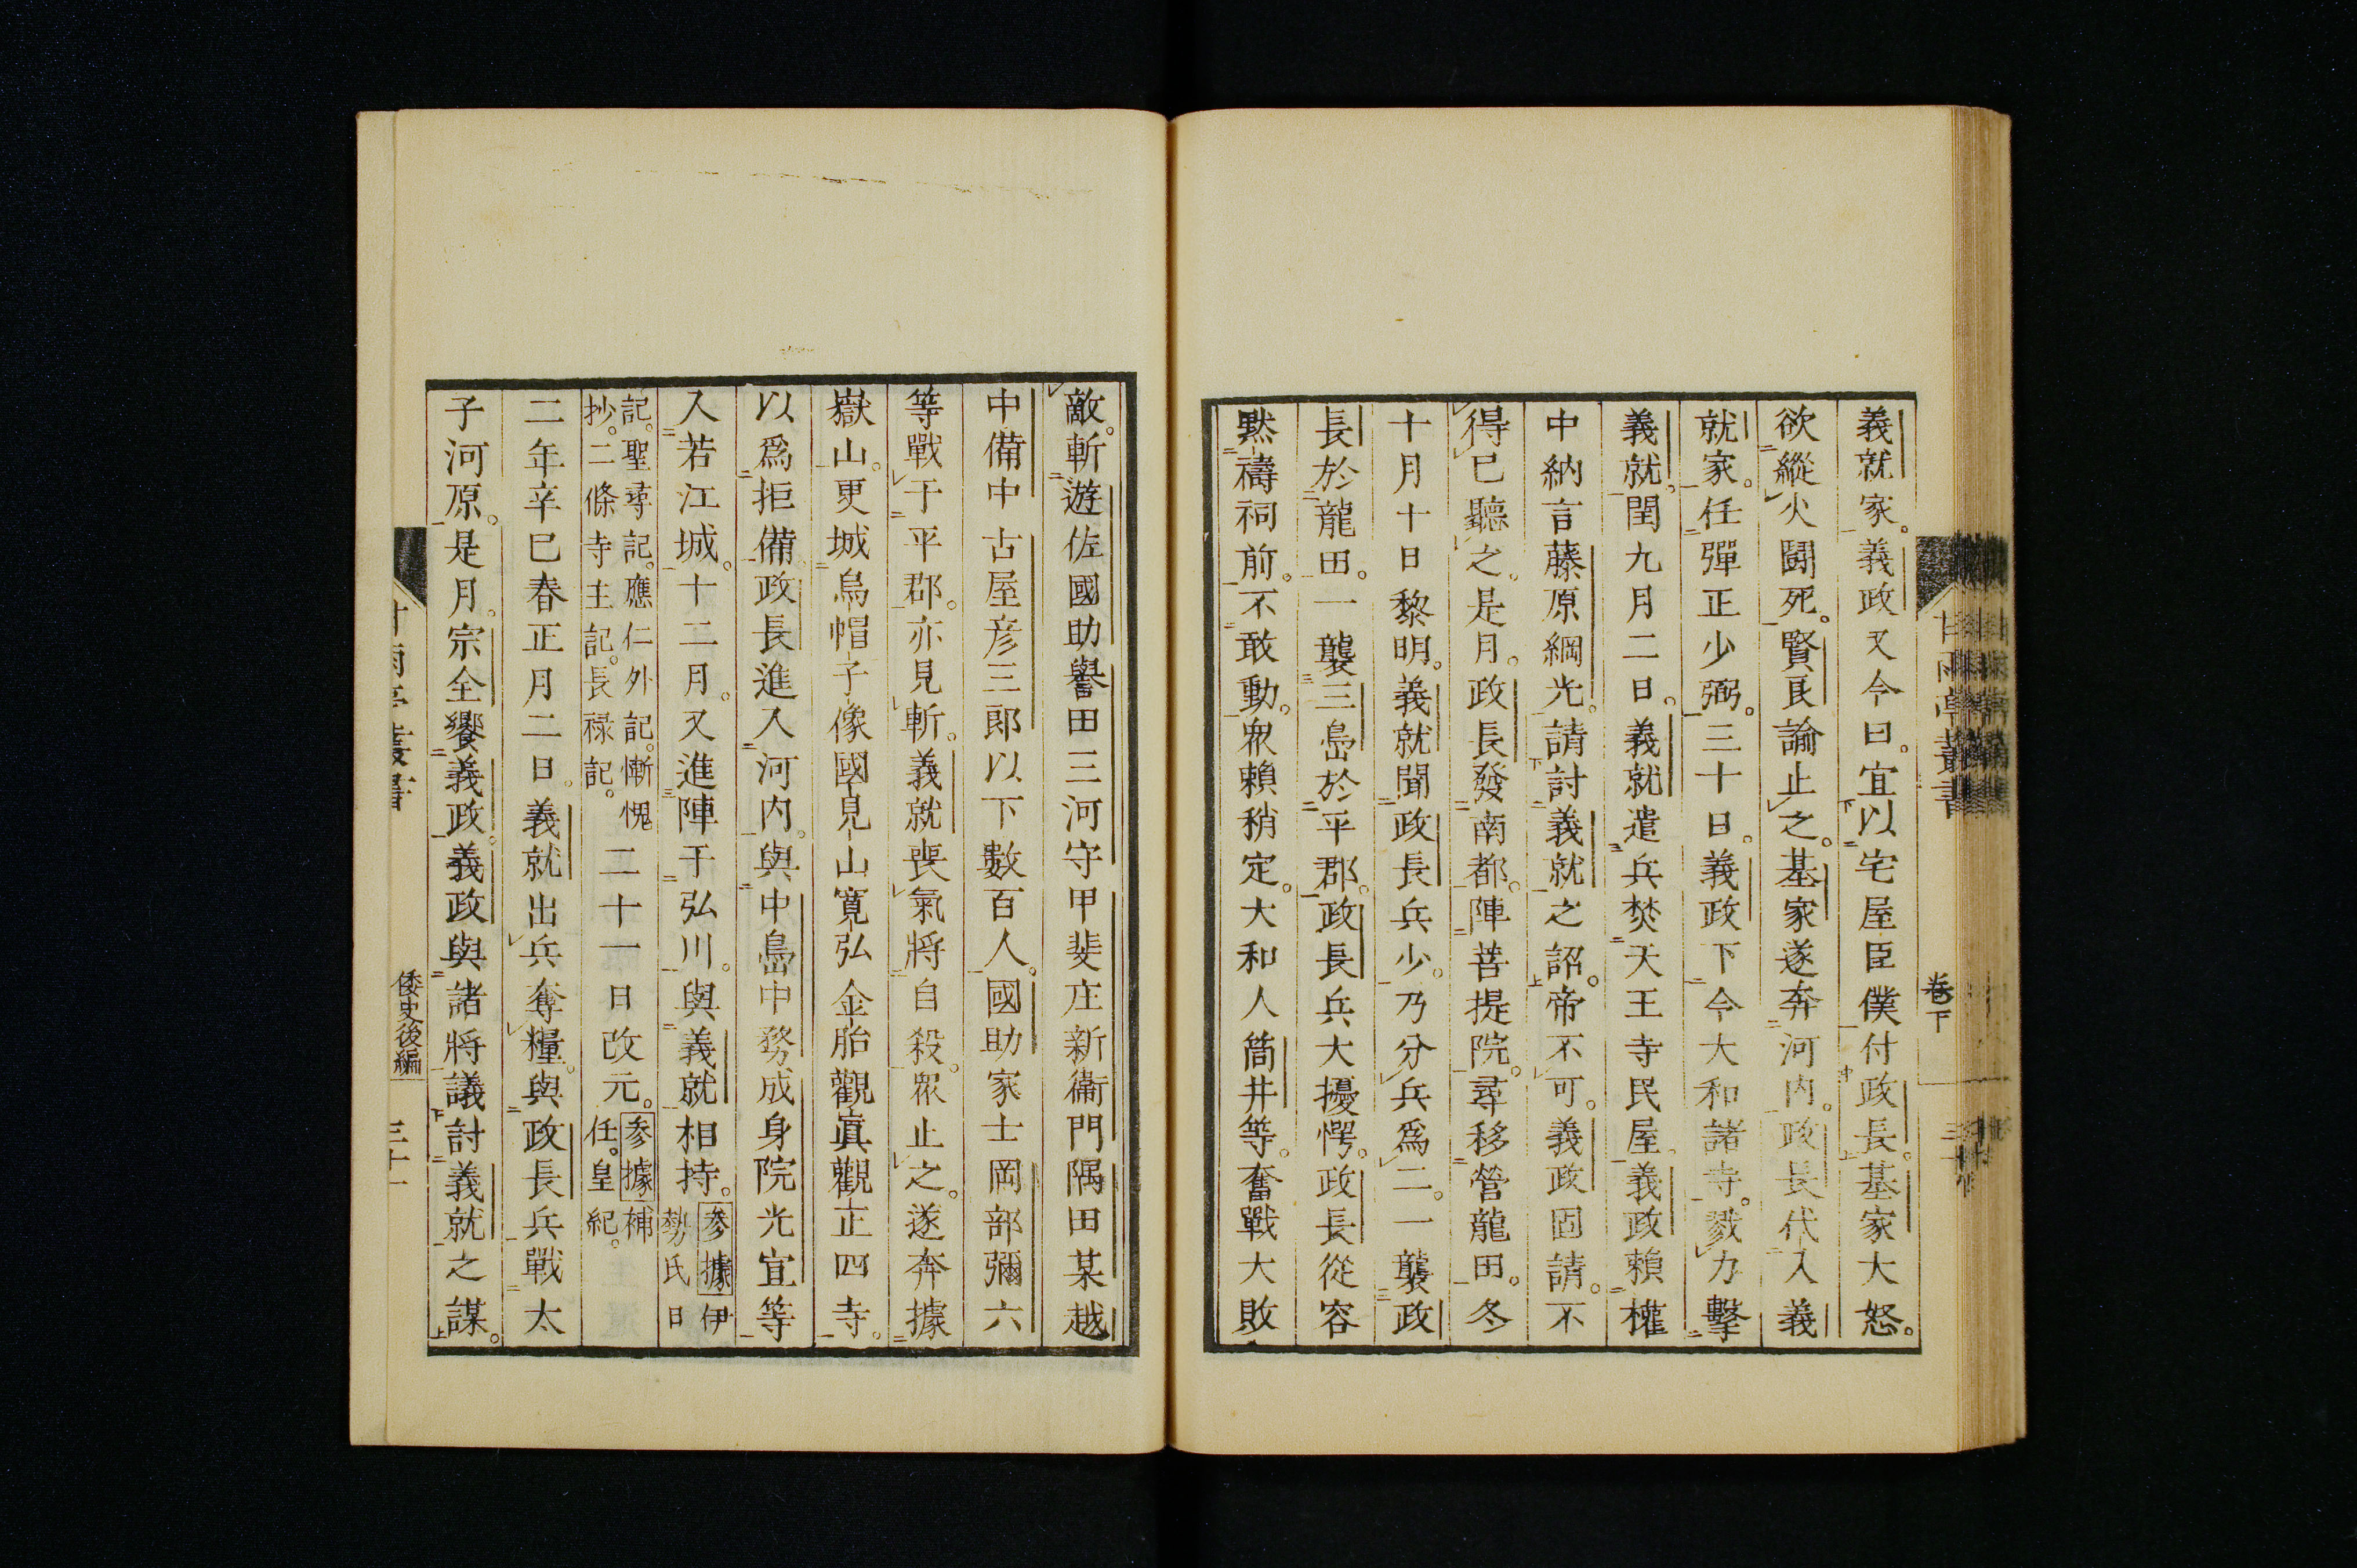 義就家。義政又令曰。宜以宅屋臣僕付政長。基家大怒。
欲縱火鬪死。賢良諭止之。基家遂奔河内。政長代入義
就家。任彈正少弼。三十日。義政下令大和諸寺。戮力擊
義就。閏九月二日。義就遣兵焚天王寺民屋。義政賴權
中納言藤原綱光。請討義就之詔。帝不可。義政固請。不
得已聽之。是月。政長發南都。陣菩提院。尋移營龍田。冬
十月十日黎明。義就聞政長兵少。乃分兵爲二。一襲政
長於龍田。一襲三島於平郡。政長兵大擾愕。政長從容
默禱祠前。不敢動。衆賴稍定。大和人筒井等。奮戰大敗
卷下
敵。斬遊佐國助譽田三河守甲斐庄新衞門隅田某越
中備中古屋彦三郎以下數百人。國助家士岡部彌六
等戰于平郡。亦見斬。義就喪氣將自殺。衆止之。遂奔據
嶽山。更城烏帽子像國見山寬弘金胎觀眞觀正四寺。
以爲拒備。政長進入河内。與中島中務成身院光宣等
入若江城。十二月。又進陣于弘川。與義就相持。參據伊勢氏日
記。聖尋記。應仁外記。慚愧抄。二條寺主記。長祿記。二十一日改元。參據補任。皇紀。
二年辛巳春正月二日。義就出兵奪糧。與政長兵戰太
子河原。是月。宗全饗義政。義政與諸將議討義就之謀。
倭史後編